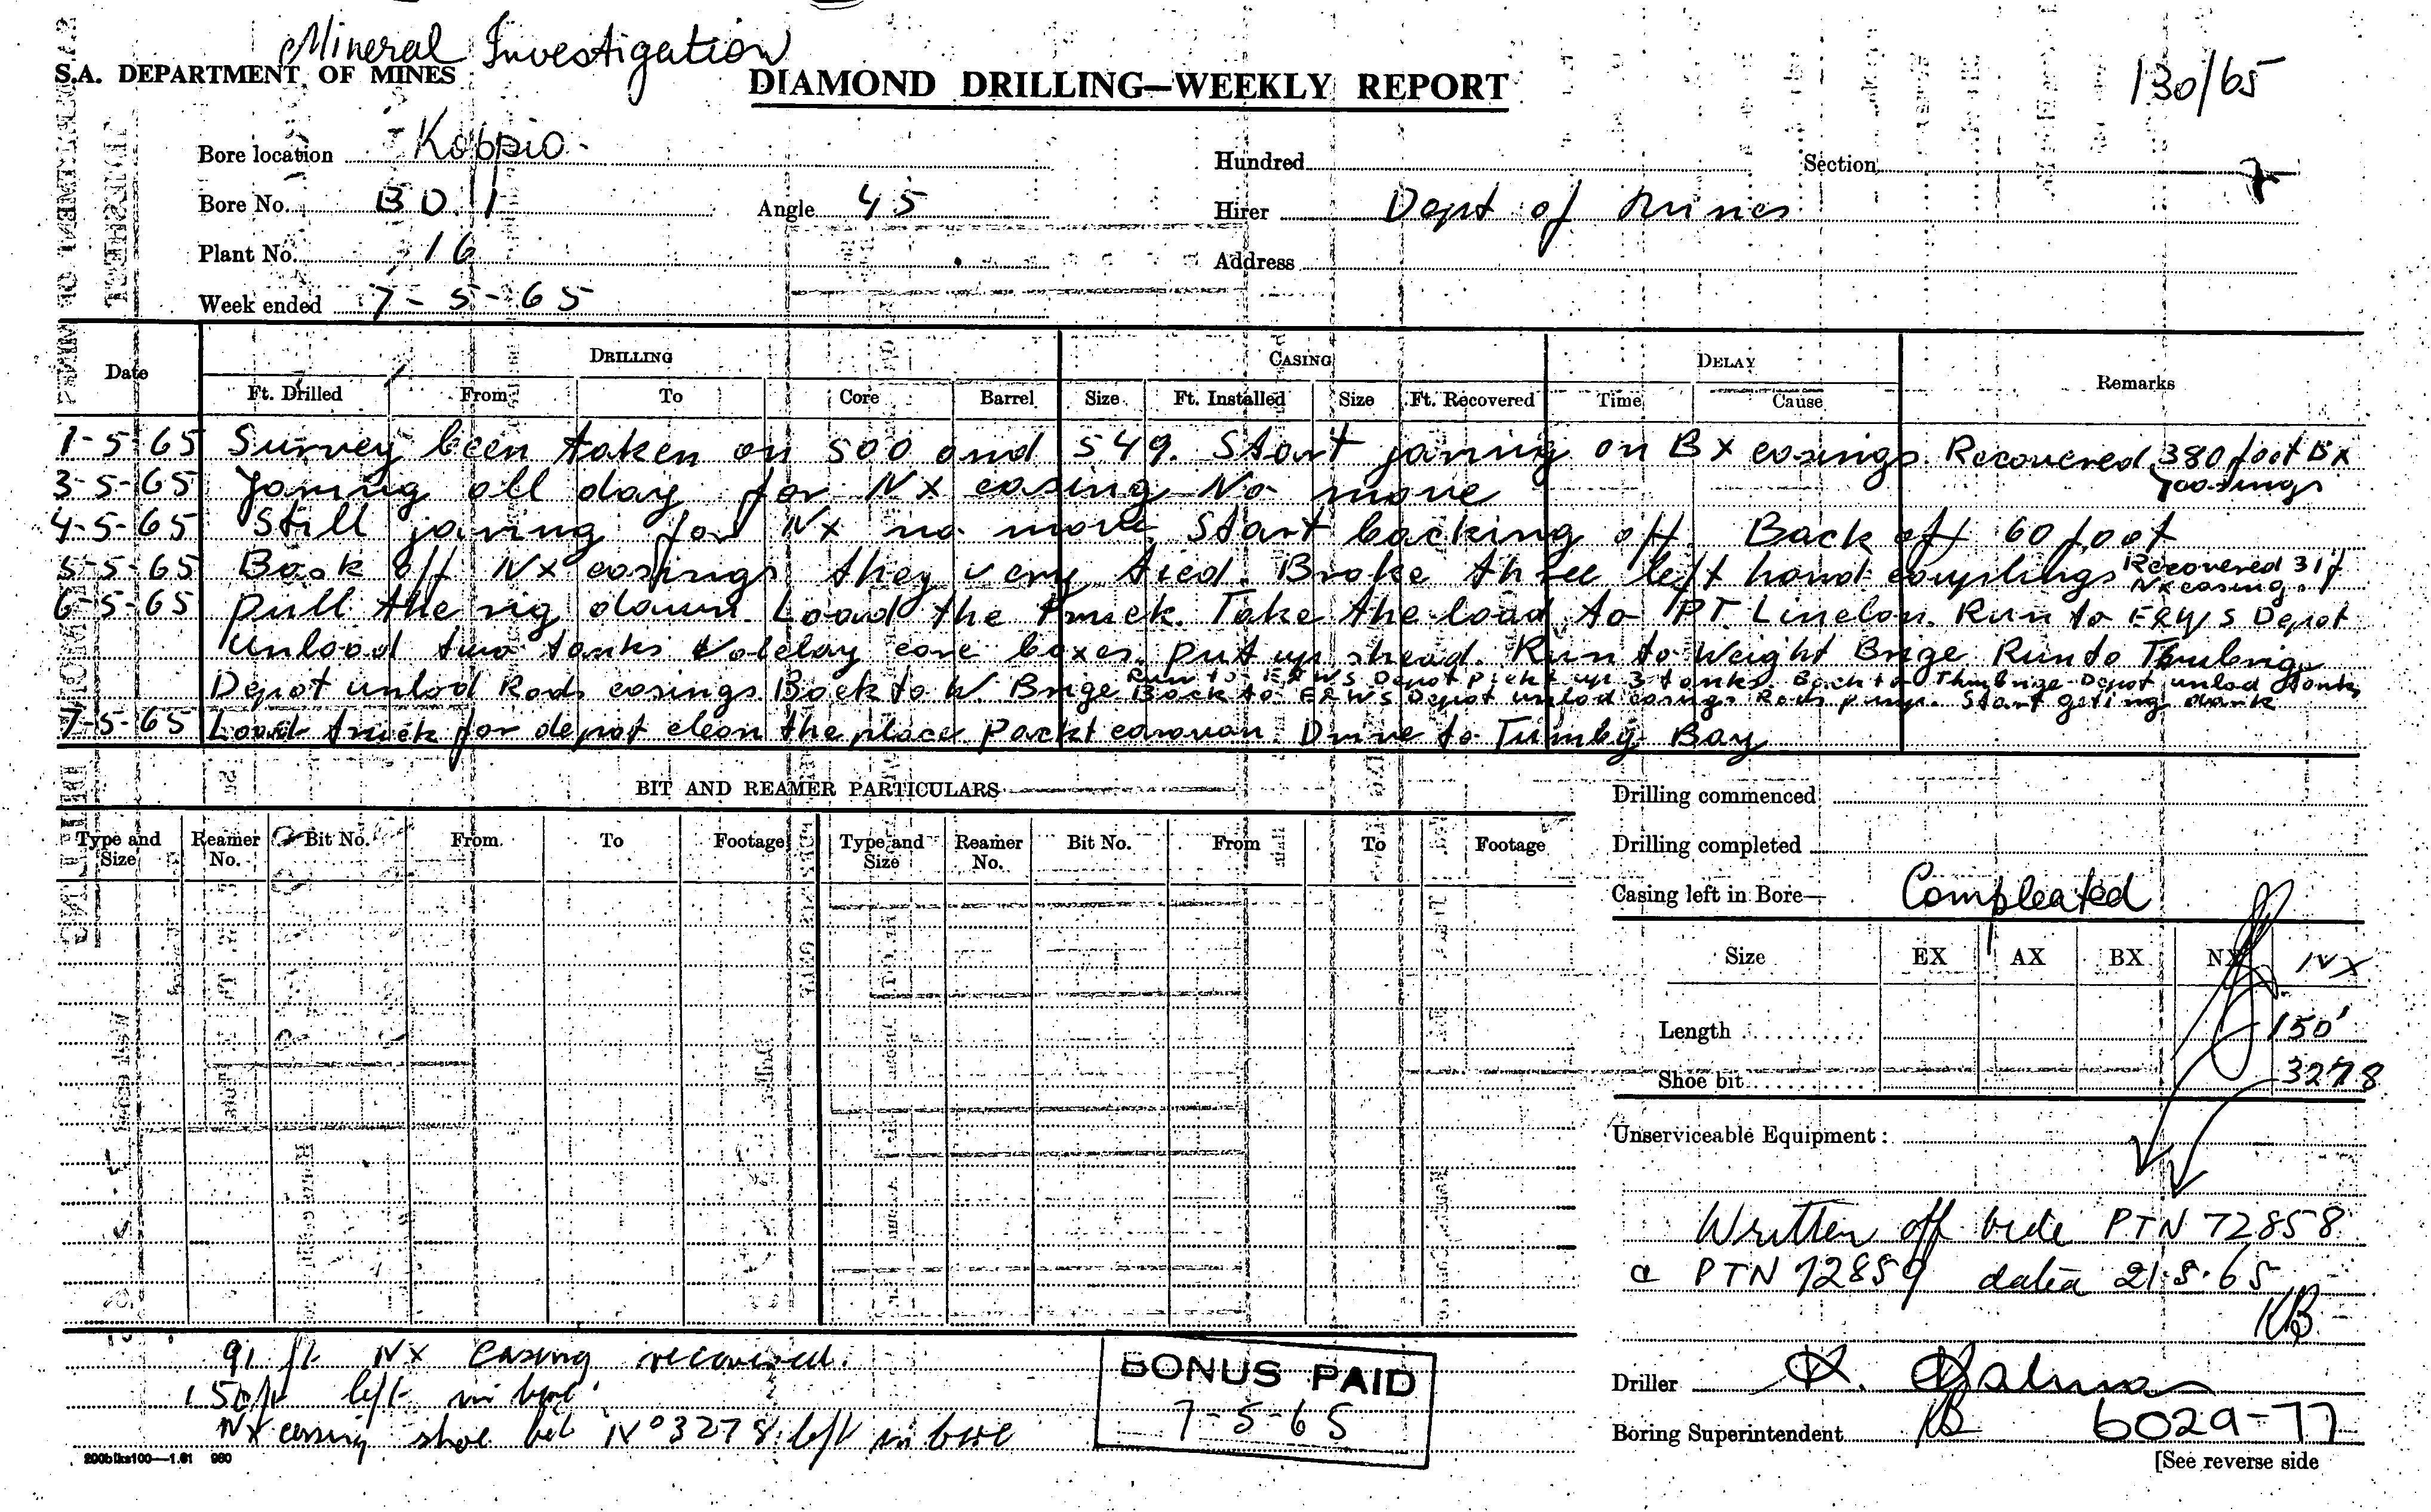 Mineral Investigation
S.A. DEPARTMENT OF MINES
DIAMOND DRILLING—WEEKLY REPORT
130/65
Bore location Koppio
Hundred Section
7
Bore No. BD. 1 Angle 45 Hirer Dept of Mines
Plant No. 16 Address
Week ended 7-5-65
DRILLING CASING DELAY
Date Remarks
Ft. Drilled From To Core Barrel Size Ft. Installed Size Ft. Recovered Time Cause
1-5-65 Survey been taken on 500 and 549. Start jaring on BX casings. Recovered 380 foot BX casings
3-5-65 Jaring all day for NX casing No move
4-5-65 Still jaring for NX no move. Start backing off. Back off 60 foot
5-5-65 Back off NX casings they very tied. Broke three left hand couplings Recovered 31 f NX casing.
6-5-65 Pull the rig down. Load the truck. Take the load to PT. Lincoln. Run to E&WS Depot
Unload two tanks core boxes. Put up shead. Run to Weight Brige Run to
Depot unlod Rods casings. Back to W. Brige Run to E&WS Depot pickt up 3 tanks. Back to Depot unlod tanks
Back to E&WS Depot unlod casings Rods pump. Start geting dark
7-5-65 Load truck for depot clean the place Packt caravan. Drive to Tumby Bay
BIT AND REAMER PARTICULARS
Drilling commenced
Type and Size Reamer No. Bit No. From To Footage Type and Size Reamer No. Bit No. From To Footage
Drilling completed
Casing left in Bore— Compleated
Size EX AX BX NX NX
Length 150'
Shoe bit 3278
Unserviceable Equipment:
Written off vide PTN 72858
& PTN 72859 dated 21.5.65
KB
91 ft NX casing recovered.
150 ft left in bore.
NX casing shoe bit No 3278 left in bore
BONUS PAID
7-5-65
Driller
Boring Superintendent KB 6029-77
[See reverse side
200blks100—1.61 960